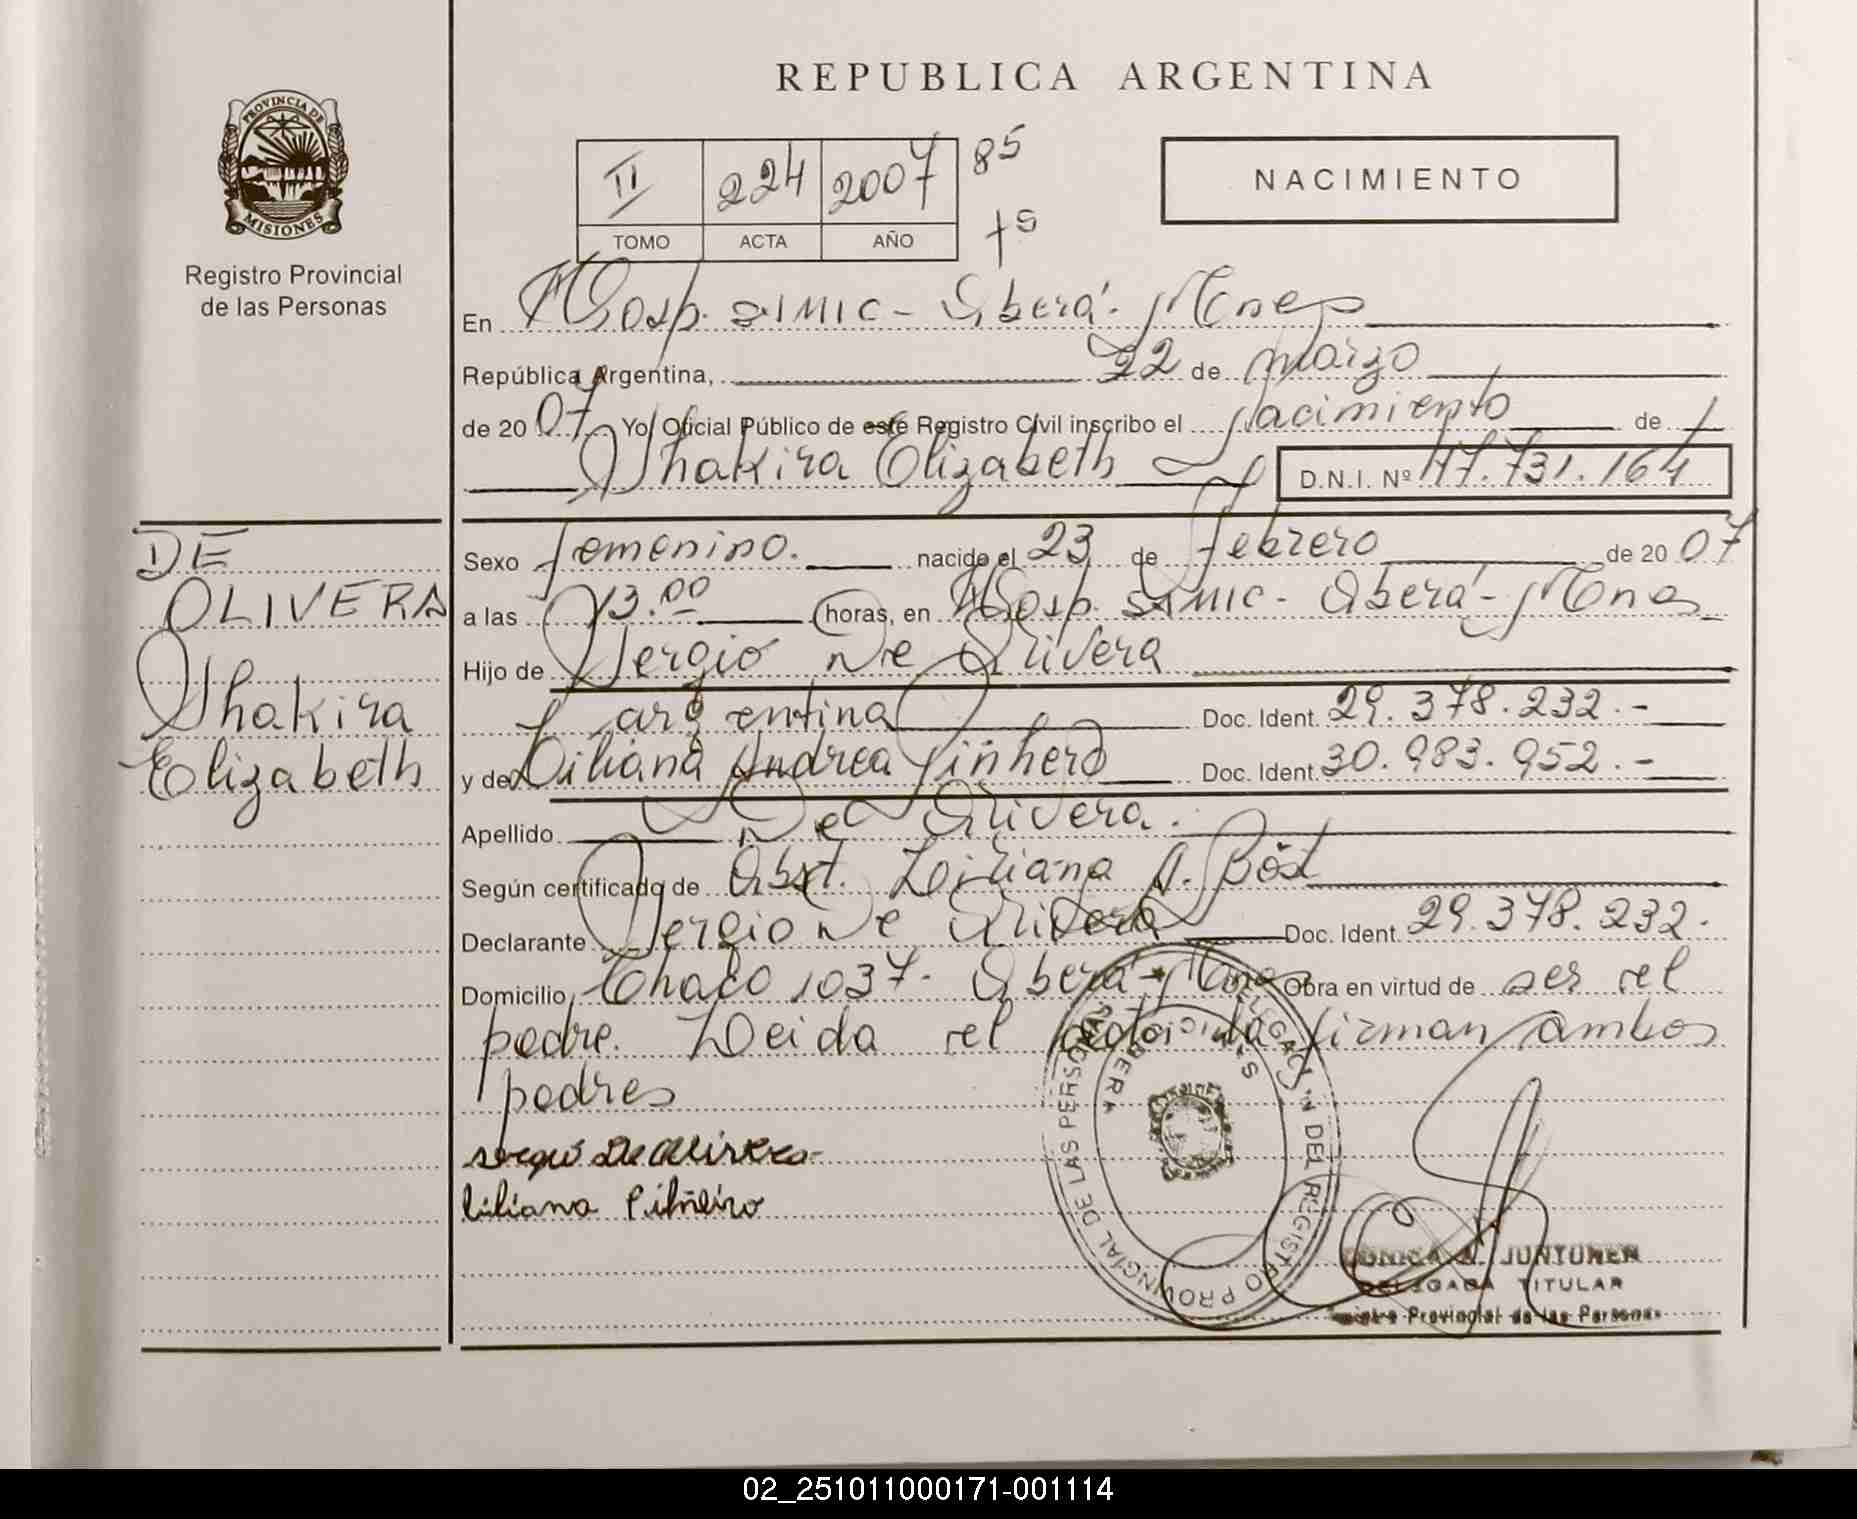 REPUBLICA ARGENTINA
PROVINCIA DE
MISIONES
Registro Provincial
de las Personas
II 224 2007 85
TOMO ACTA AÑO
NACIMIENTO
En Hosp. SAMIC - Oberá - Mnes
República Argentina, 22 de marzo
de 20 07 Yo, Oficial Público de este Registro Civil inscribo el Nacimiento de
Shakira Elizabeth D.N.I. Nº 47.731.164
DE
OLIVERA
Shakira
Elizabeth
Sexo femenino. nacido el 23 de febrero de 20 07
a las 13.00 horas, en Hosp. SAMIC - Oberá - Mnes
Hijo de Sergio De Olivera
argentina Doc. Ident. 29.378.232.-
y de Liliana Andrea Piñhero Doc. Ident. 30.983.952.-
Apellido De Olivera.
Según certificado de Obst. Liliana A. Böst
Declarante Sergio De Olivera Doc. Ident. 29.378.232.
Domicilio Chaco 1037 - Oberá - Mnes Obra en virtud de ser el
padre. Leida el acta la firman ambos
padres
Sergio De Olivera
liliana Piñeiro
DELEGACION DEL REGISTRO PROVINCIAL DE LAS PERSONAS
OBERA
JUNTUNEN
DELEGADA TITULAR
Registro Provincial de las Personas
02_251011000171-001114